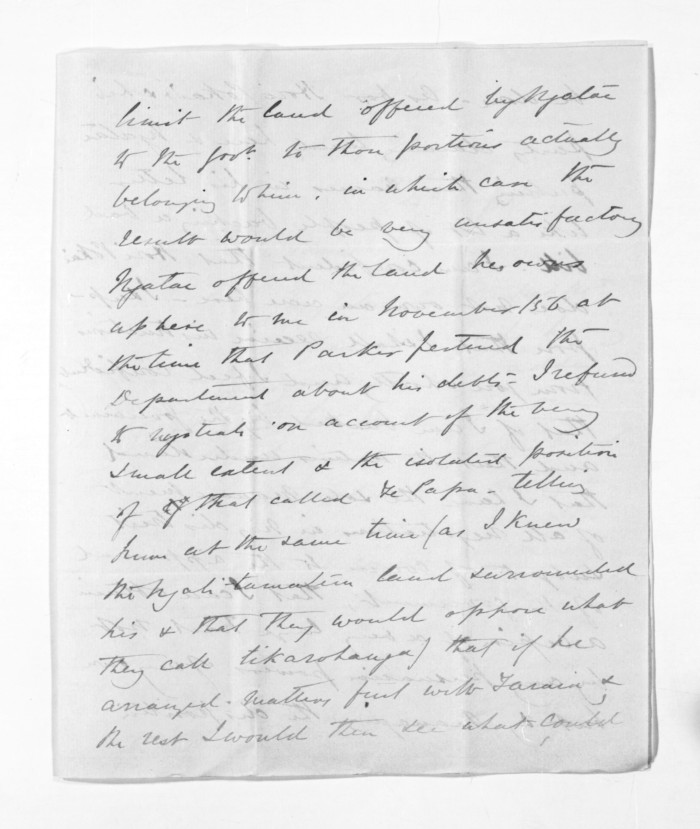 limit the land offered by Ngatae
to the Govt. to those portions actually
belonging to him, in which case the
result would be very unsatisfactory
Ngatae offered the land he owns
up here to me in November /56 at
the time that Parker pestered the
Department about his debts - I refused
to negotiate on account of the very
small extent & the isolated position
of that called Te Papa - telling
him at the same time (as I knew
the Ngati tamatera land surrounded
his & that they would oppose what
they call tikarohanga) that if he
arranged matters first with Taraia &
the rest I would then see what could